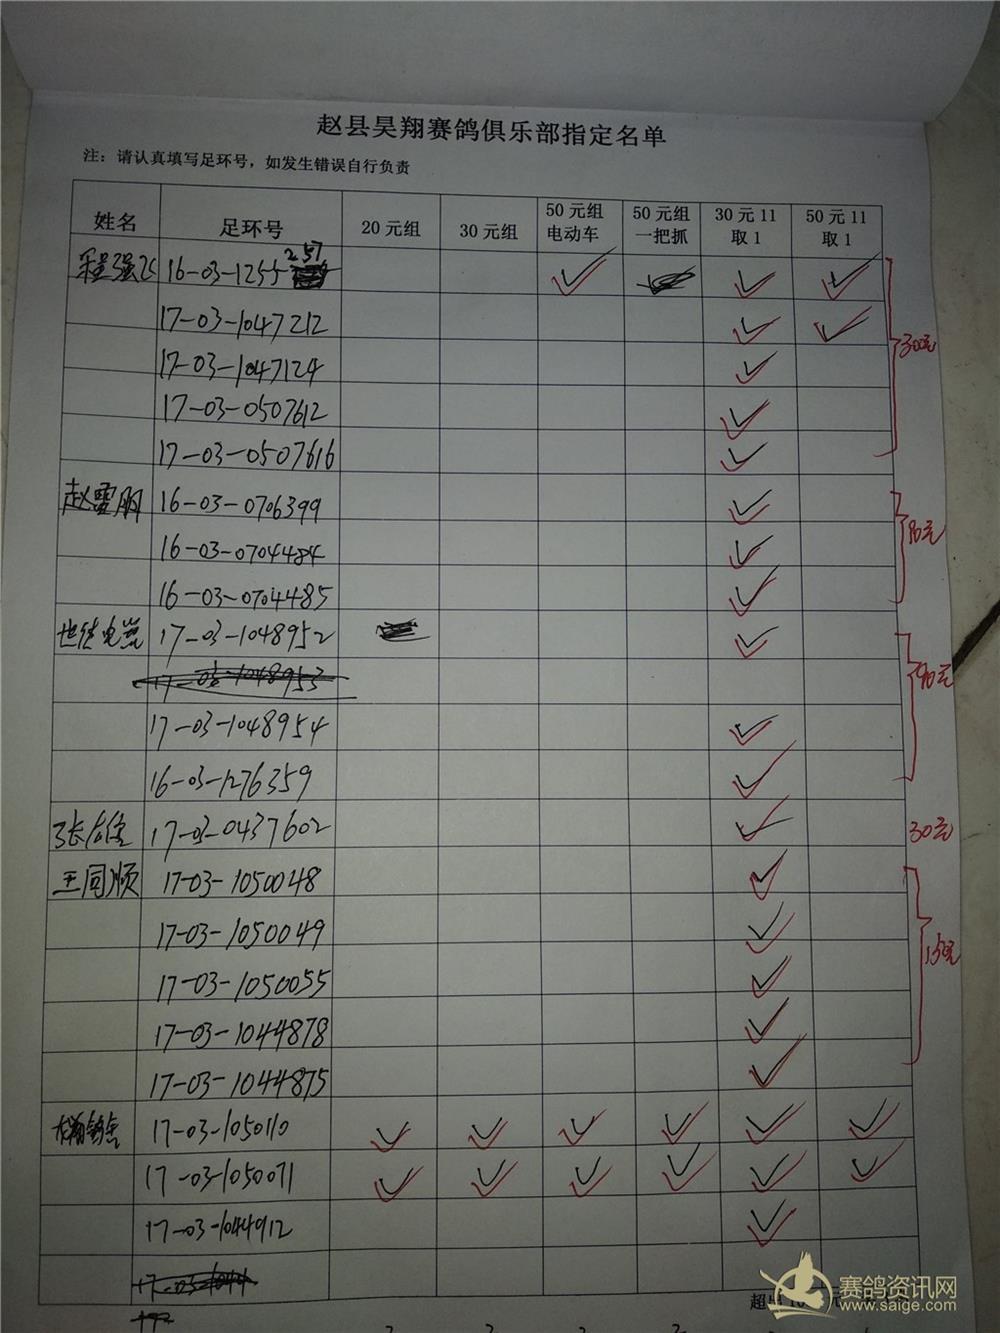 赵县昊翔赛鸽俱乐部指定名单
注：请认真填写足环号，如发生错误自行负责
姓名 足环号 20元组 30元组 50元组电动车 50元组一把抓 30元11取1 50元11取1
程强 16-03-1255 257 ✓ ✓ ✓
17-03-1047212 ✓ ✓
17-03-1047124 ✓
17-03-0507612 ✓
17-03-0507616 ✓
300元
赵雷朋 16-03-0706399 ✓
16-03-0704484 ✓
16-03-0704485 ✓
90元
17-03-1048952 ✓
17-03-1048953
17-03-1048954 ✓
16-03-1276359 ✓
90元
17-03-0437602 ✓ 30元
王同顺 17-03-1050048 ✓
17-03-1050049 ✓
17-03-1050055 ✓
17-03-1044878 ✓
17-03-1044875 ✓
150元
17-03-1050110 ✓ ✓ ✓ ✓ ✓ ✓
17-03-1050071 ✓ ✓ ✓ ✓ ✓ ✓
17-03-1044912 ✓
17-03-1044
赛鸽资讯网
www.saige.com